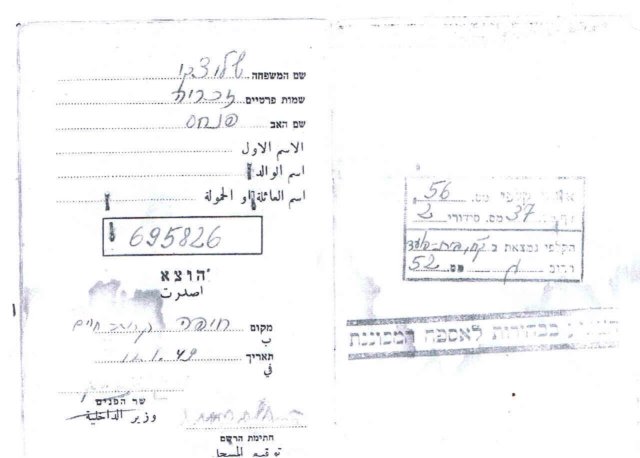 שם המשפחה
שמות פרטיים זכריה
שם האב פנחס
الاسم الاول
اسم الوالد
اسم العائلة او الحمولة
695826
הוצא
اصدرت
מקום חיפה
ب
תאריך 11.1.49
في
שר הפנים
وزير الداخلية
חתימת הרשם
توقيع المسجل
מס. 56
37 מס. סידורי 2
הקלפי נמצאת ב
רחוב מס 52
בבחירות לאספה המכוננת